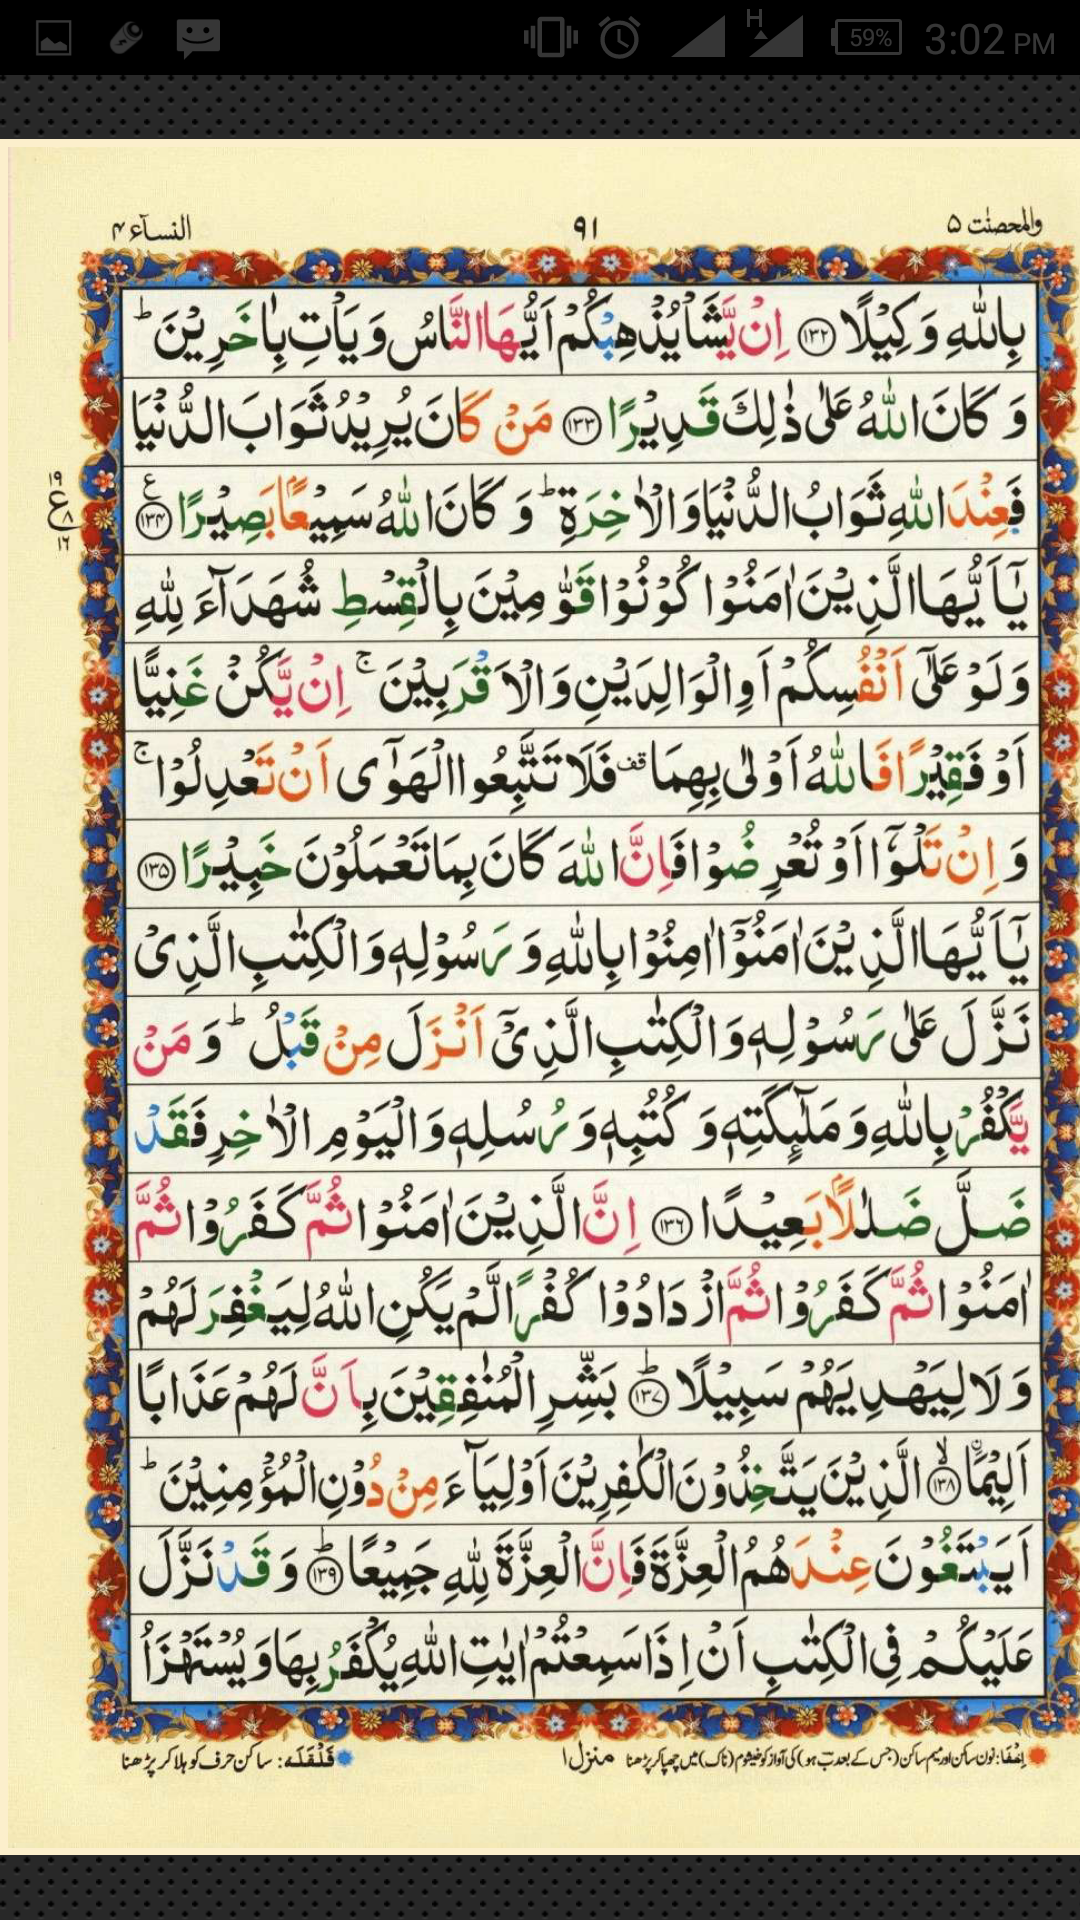 59% 3:02 PM
H
والمحصنٰت ۵ ۹۱ النسآء ۴
بِاللّٰهِ وَكِيْلًا ۝۱۳۲ اِنْ يَّشَاْ يُذْهِبْكُمْ اَيُّهَا النَّاسُ وَيَاْتِ بِاٰخَرِيْنَ ؕ
وَكَانَ اللّٰهُ عَلٰى ذٰلِكَ قَدِيْرًا ۝۱۳۳ مَنْ كَانَ يُرِيْدُ ثَوَابَ الدُّنْيَا
فَعِنْدَ اللّٰهِ ثَوَابُ الدُّنْيَا وَالْاٰخِرَةِ ؕ وَكَانَ اللّٰهُ سَمِيْعًۢا بَصِيْرًا ۝۱۳۴ ع
۱۹ ع ۸ ۱۶
يٰۤاَيُّهَا الَّذِيْنَ اٰمَنُوْا كُوْنُوْا قَوّٰمِيْنَ بِالْقِسْطِ شُهَدَآءَ لِلّٰهِ
وَلَوْ عَلٰۤى اَنْفُسِكُمْ اَوِ الْوَالِدَيْنِ وَالْاَقْرَبِيْنَ ۚ اِنْ يَّكُنْ غَنِيًّا
اَوْ فَقِيْرًا فَاللّٰهُ اَوْلٰى بِهِمَا قف فَلَا تَتَّبِعُوا الْهَوٰۤى اَنْ تَعْدِلُوْا ۚ
وَاِنْ تَلْوٗۤا اَوْ تُعْرِضُوْا فَاِنَّ اللّٰهَ كَانَ بِمَا تَعْمَلُوْنَ خَبِيْرًا ۝۱۳۵
يٰۤاَيُّهَا الَّذِيْنَ اٰمَنُوْۤا اٰمِنُوْا بِاللّٰهِ وَرَسُوْلِهٖ وَالْكِتٰبِ الَّذِىْ
نَزَّلَ عَلٰى رَسُوْلِهٖ وَالْكِتٰبِ الَّذِىْۤ اَنْزَلَ مِنْ قَبْلُ ؕ وَمَنْ
يَّكْفُرْ بِاللّٰهِ وَمَلٰٓئِكَتِهٖ وَكُتُبِهٖ وَرُسُلِهٖ وَالْيَوْمِ الْاٰخِرِ فَقَدْ
ضَلَّ ضَلٰلًۢا بَعِيْدًا ۝۱۳۶ اِنَّ الَّذِيْنَ اٰمَنُوْا ثُمَّ كَفَرُوْا ثُمَّ
اٰمَنُوْا ثُمَّ كَفَرُوْا ثُمَّ ازْدَادُوْا كُفْرًا لَّمْ يَكُنِ اللّٰهُ لِيَغْفِرَ لَهُمْ
وَلَا لِيَهْدِيَهُمْ سَبِيْلًا ؕ۝۱۳۷ بَشِّرِ الْمُنٰفِقِيْنَ بِاَنَّ لَهُمْ عَذَابًا
اَلِيْمًا ۙ۝۱۳۸ الَّذِيْنَ يَتَّخِذُوْنَ الْكٰفِرِيْنَ اَوْلِيَآءَ مِنْ دُوْنِ الْمُؤْمِنِيْنَ ؕ
اَيَبْتَغُوْنَ عِنْدَهُمُ الْعِزَّةَ فَاِنَّ الْعِزَّةَ لِلّٰهِ جَمِيْعًا ؕ۝۱۳۹ وَقَدْ نَزَّلَ
عَلَيْكُمْ فِى الْكِتٰبِ اَنْ اِذَا سَمِعْتُمْ اٰيٰتِ اللّٰهِ يُكْفَرُ بِهَا وَيُسْتَهْزَاُ
اِخفَا: نون ساکن اور میم ساکن (جس کے بعد ب ہو) کی آواز کو خیشوم (ناک) میں چھپا کر پڑھنا منزل ۱ قَلْقَلَه: ساکن حرف کو ہلا کر پڑھنا